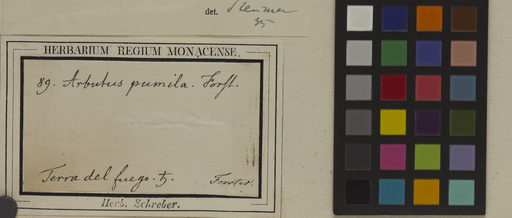 det. Sleumer
35
HERBARIUM REGIUM MONACENSE.
89. Arbutus pumila. Forst.
Terra del fuego. ♄.
Forster.
Herb. Schreber.